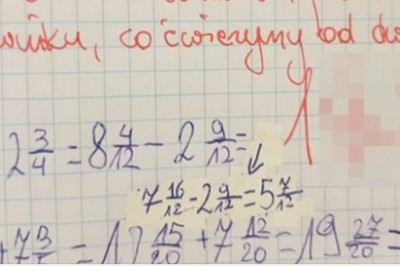 co ćwiczymy od
2 3/4 = 8 4/12 - 2 9/12 =
7 16/12 - 2 9/12 = 5 7/12
+ 7 3/5 = 12 15/20 + 7 12/20 = 19 27/20 =